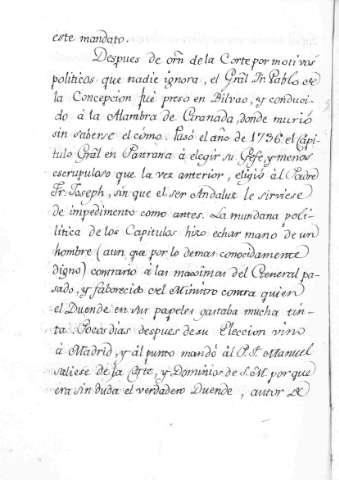 este mandato.
Despues de orñ de la Corte por motivos
políticos que nadie ignora, el Gräl Fr. Pablo de
la Concepcion fué preso en Bilvao, y conduci-
do á la Alambra de Granada, donde murió
sin saberse el cómo. Pasó el año de 1736. el Capi-
tulo Gräl en Pastrana á elegir su Gefe, y menos
escrupuloso que la vez anterior, eligió ál Padre
Fr. Joseph, sin que el ser Andaluz le sirviese
de impedimento como antes. La mundana poli-
litica de los Capitulos hizo echar mano de un
hombre (aun que por lo demas conocidamente
digno) contrario á las maximas del General pa-
sado, y faborecido del Ministro contra quien
el Duende en sus papeles gastaba mucha tin-
ta. Pocos dias despues de su Eleccion vino
á Madrid, y ál punto mandó ál P. Fr. Manuel
saliese de la Corte, y Dominios de S.M. por que
era sin duda el verdadero Duende, autor de